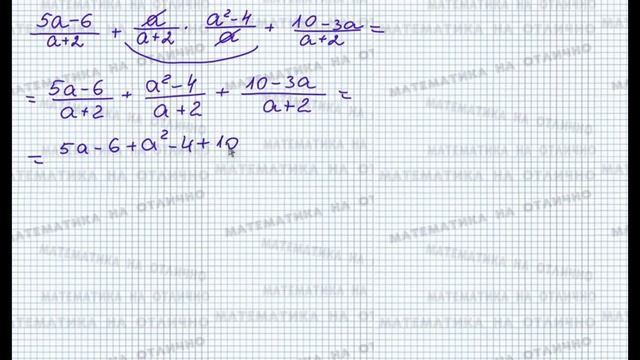 (5a-6)/(a+2) + a/(a+2) · (a²-4)/a + (10-3a)/(a+2) =
= (5a-6)/(a+2) + (a²-4)/(a+2) + (10-3a)/(a+2) =
= 5a-6+a²-4+10
МАТЕМАТИКА НА ОТЛИЧНО